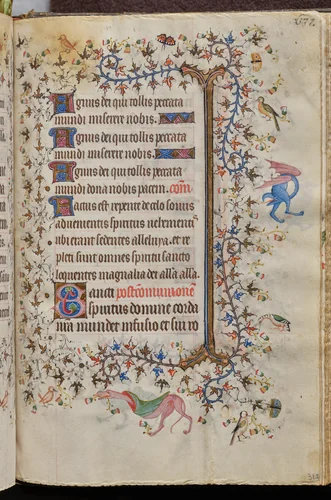 Agnus dei qui tollis peccata
mundi miserere nobis.
Agnus dei qui tollis peccata
mundi miserere nobis.
Agnus dei qui tollis peccata
mundi dona nobis pacem. com
Factus est repente de celo sonus
advenientis spiritus vehementis
ubi erant sedentes alleluya. et re
pleti sunt omnes spiritu sancto
loquentes magnalia dei alla alla.
Sancti postcommunionem
spiritus domine corda
nra mundet infusio et sui ro